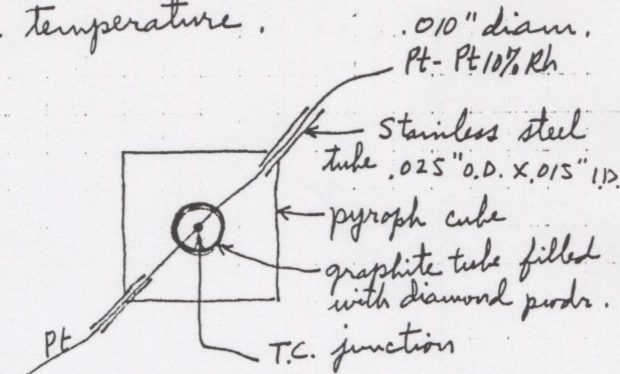 . temperature.
.010" diam.
Pt-Pt10% Rh
Stainless steel
tube .025" O.D. x .015" I.D.
pyroph cube
graphite tube filled
with diamond powdr.
T.C. junction
Pt